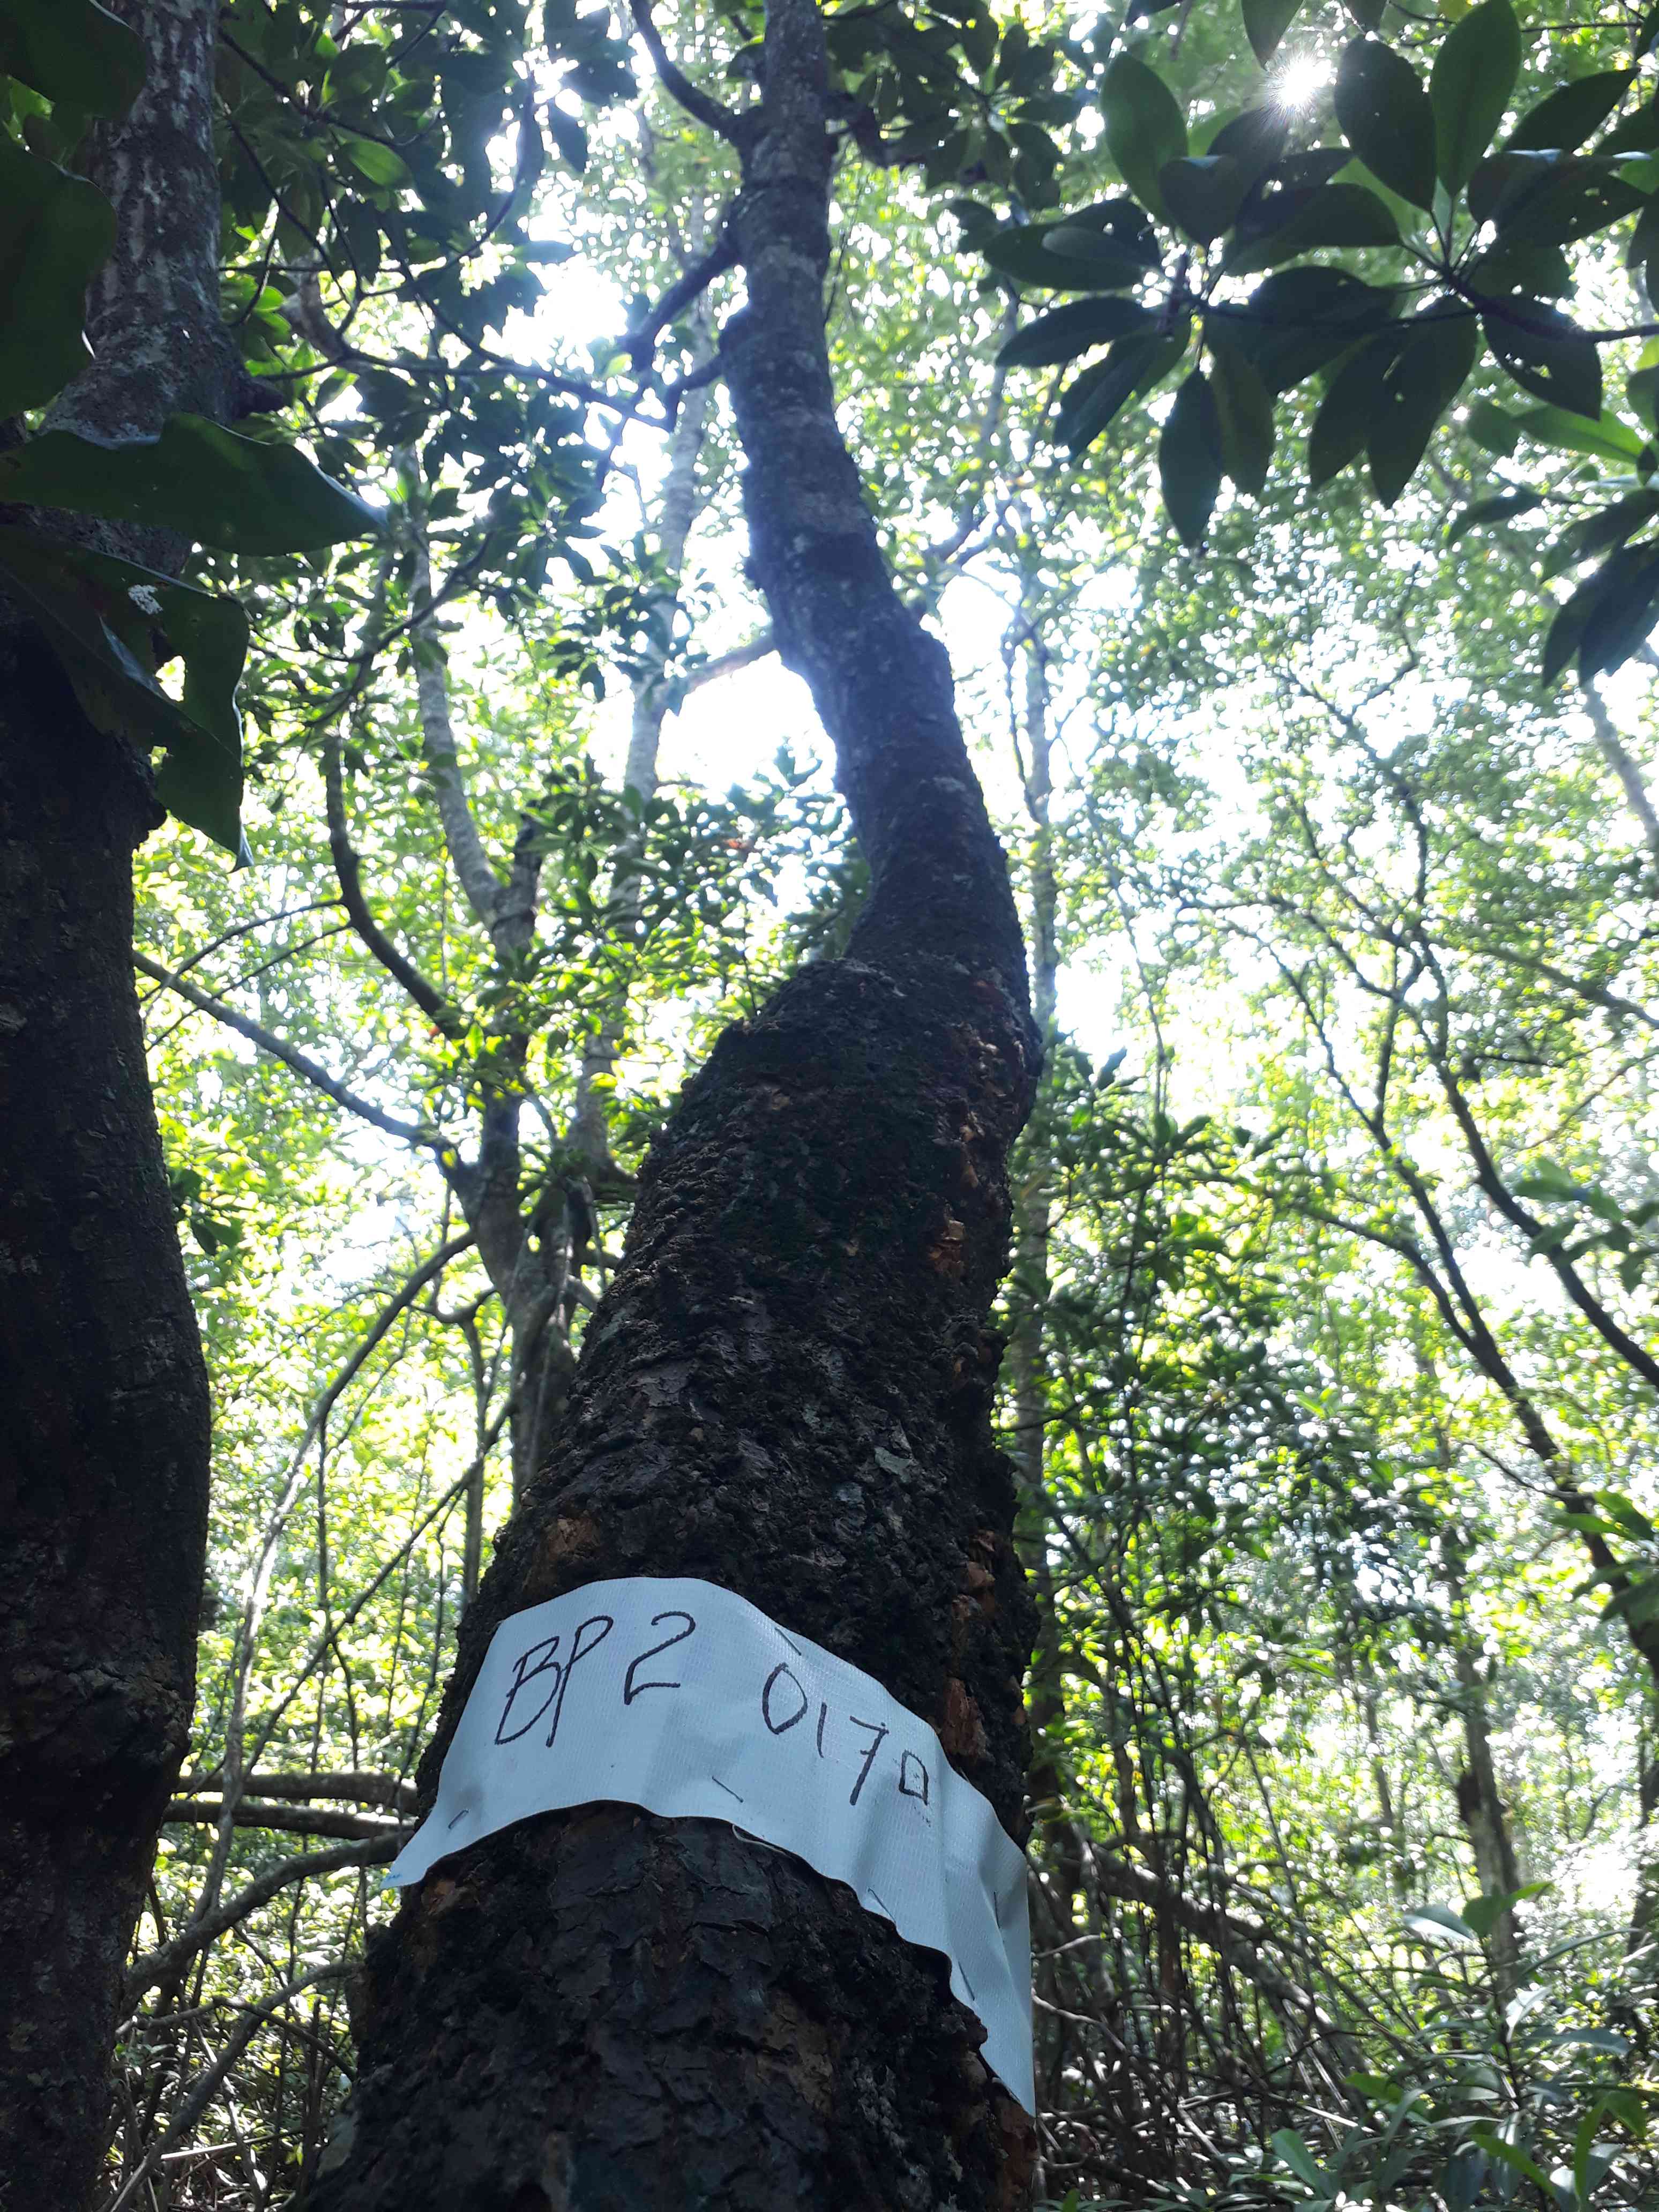 BP2 0170